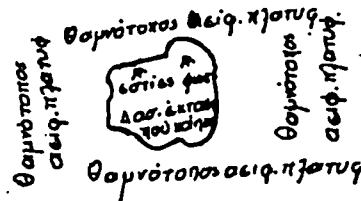 θαμνότοπος αειφ. πλατυφ.
θαμνότοπος
αειφ. πλατυφ
εστίες φωτ
Δασ. έκταση
που κάηκε
θαμνότοπος
αειφ. πλατυφ.
θαμνότοπος αειφ. πλατυφ